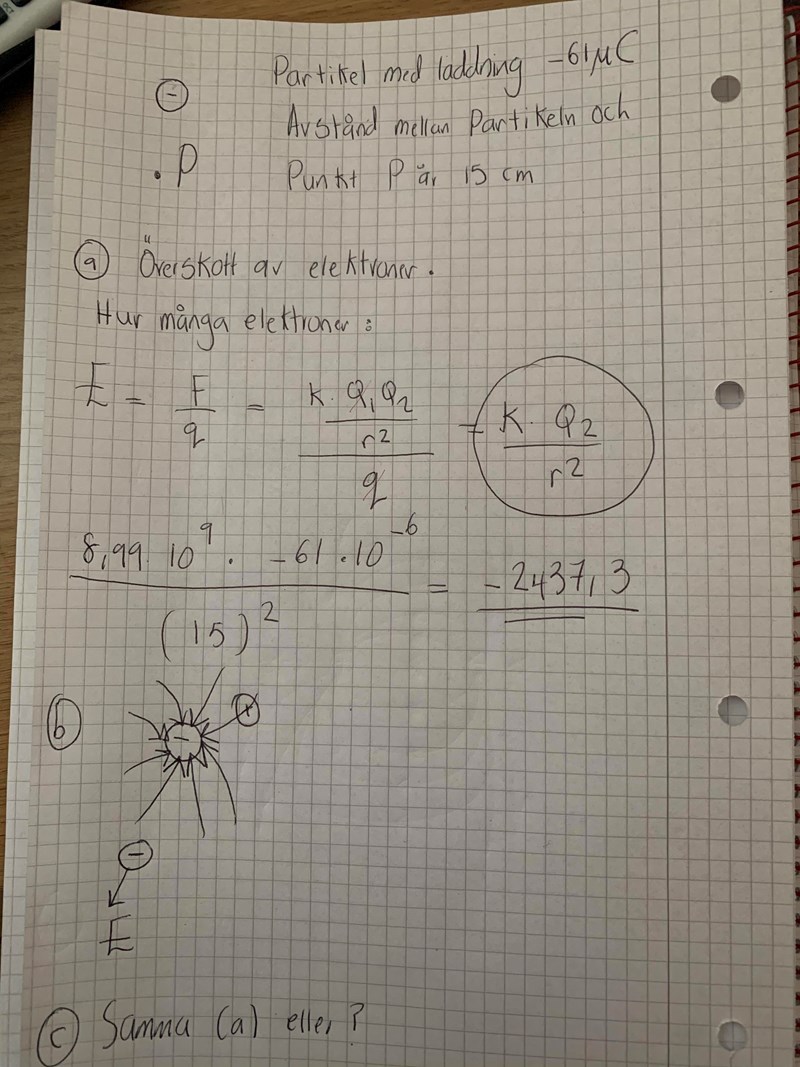 Partikel med laddning -61μC
⊖ Avstånd mellan Partikeln och
.P Punkt P är 15 cm
(a) Överskott av elektroner.
Hur många elektroner:
E = F/q = (k·Q₁Q₂/r²)/q = k·Q₂/r²
8,99 10⁹ · -61·10⁻⁶/(15)² = -2437,3
(b)
+
-
-
E
(c) Samma (a) eller?